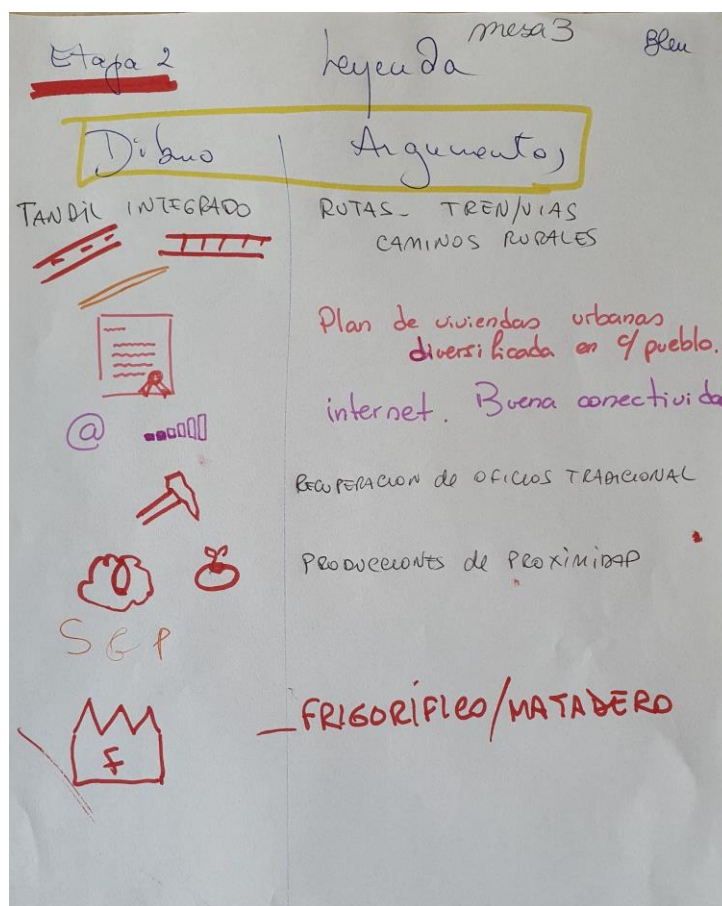 mesa 3
Bleu
Etapa 2
Leyenda
Dibuo
Argumentos
TANDIL INTEGRADO
RUTAS - TREN/VIAS
CAMINOS RURALES
Plan de viviendas urbanas
diversificada en c/ pueblo.
@
internet. Buena conectivida
RECUPERACION de OFICIOS TRADICIONAL
PRODUCCIONES de PROXIMIDAD
SGP
F
_ FRIGORÍFICO/MATADERO